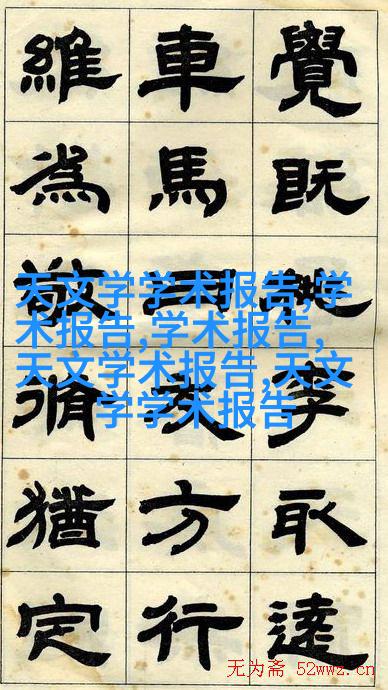 覺既桃李取遠
車馬方行
維為敬脩猶定
天文学学术报告,学
术报告,学术报告,
天文学学术报告,天文
学学术报告
无为斋 52wwz.cn